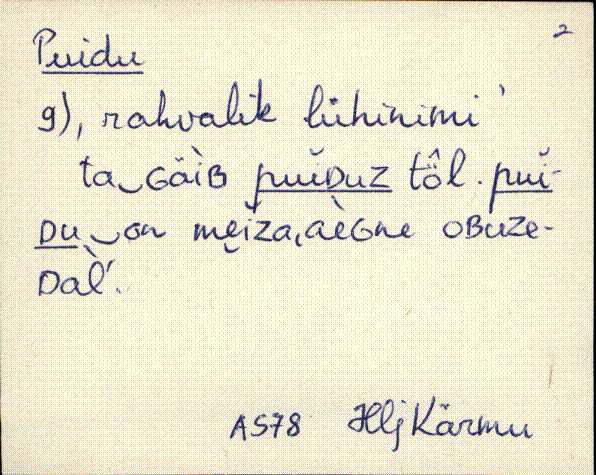 2
Puidu
g), rahvalik lühinimi'
ta‿GäìB puĭDuz tȏl. puĭ-
Du‿on mĕiza,aèGne oBuze-
Dàl'.
AS78 Hlj Kärmu